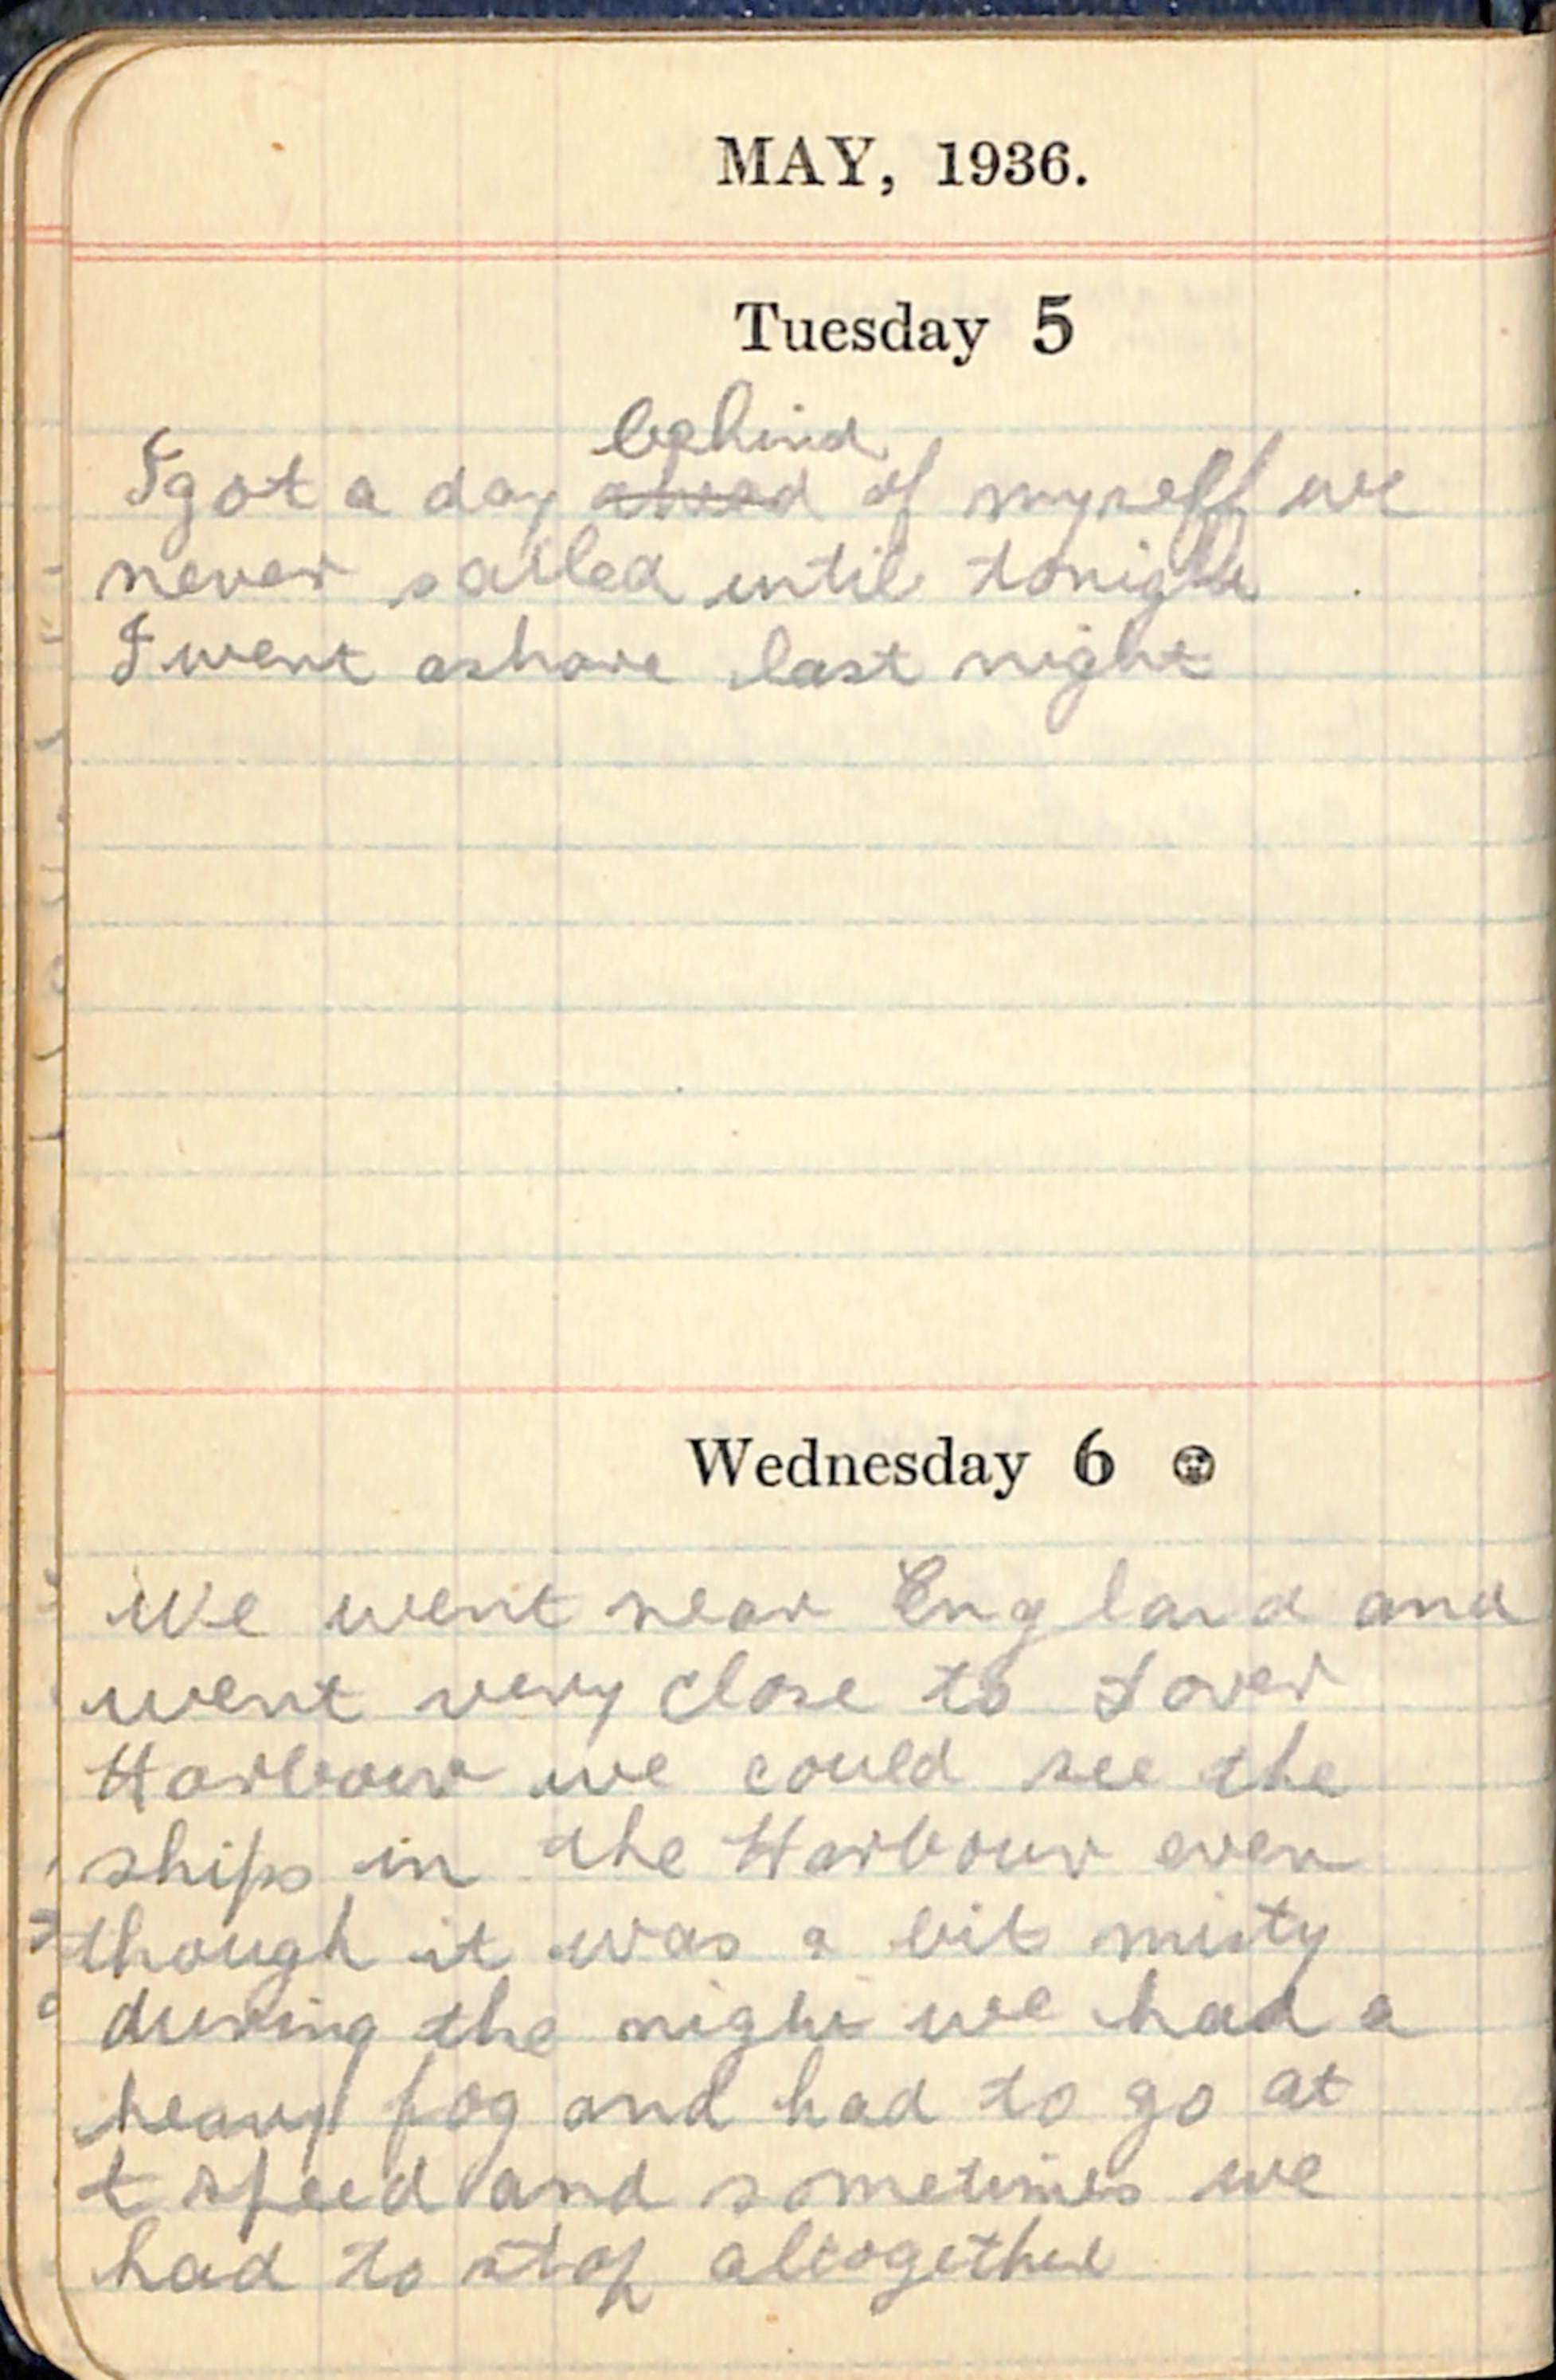 MAY, 1936.
Tuesday 5
behind
I got a day ahead of myself we
never sailed until tonight
I went ashore last night
Wednesday 6
We went near England and
went very close to Dover
Harbour we could see the
ships in the Harbour even
though it was a bit misty
during the night we had a
heavy fog and had to go at
speed and sometimes we
had to stop altogether